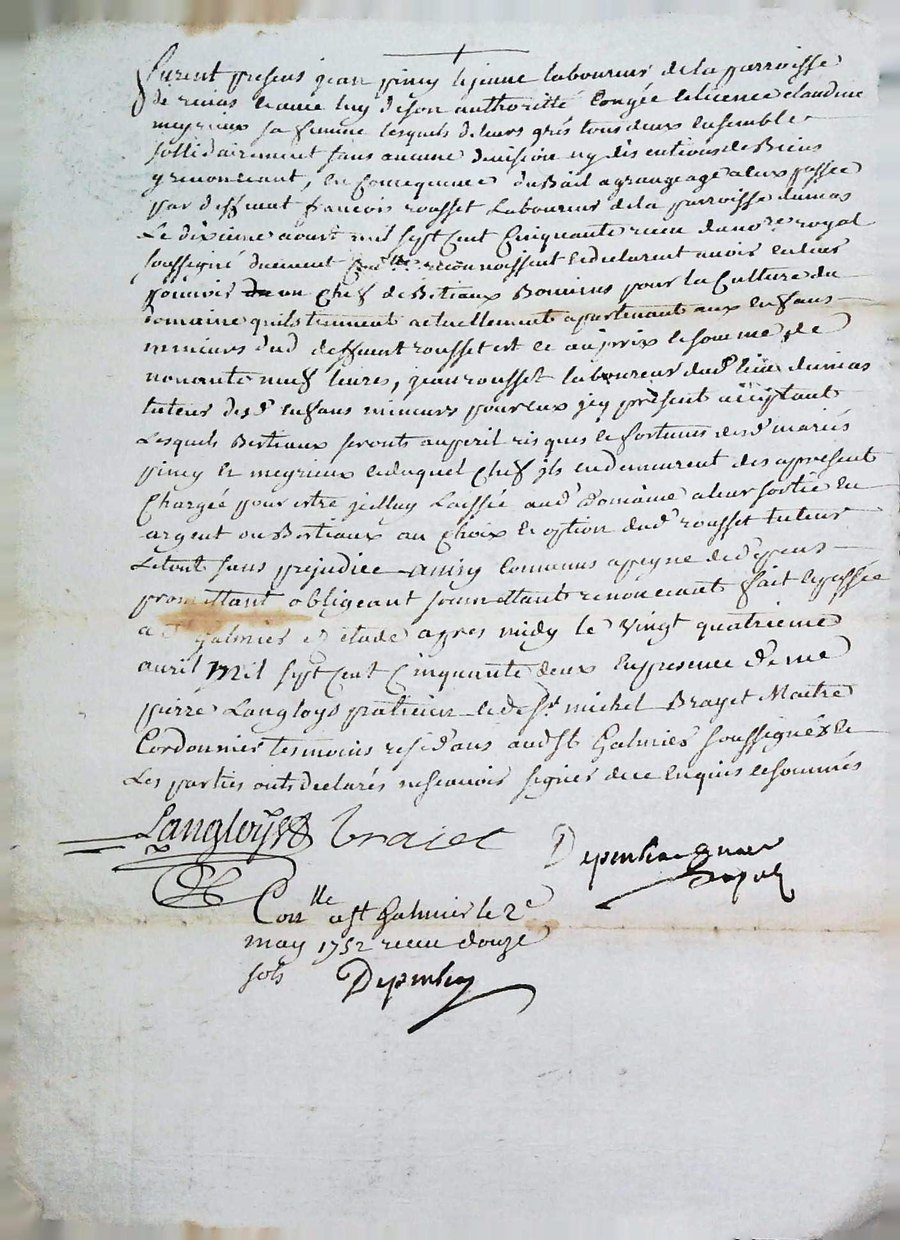 furent presens jean piney lejeune laboureur de la parroisse
de rivas et avec luy de son authoritté Congée et licence claudine
meyrieux sa femme lesquels de leurs grés tous deux ensemble
sollidairement sans aucune division ny discutions de Biens
y renonceant, en Consequence du Bail a grangeage a eux passée
par deffunt françois rousset Laboureur de la parroisse dumas
Le dixieme aoust mil sept Cent Cinquante receu du no.re royal
soussigné duement Con.llé reconnoissent et declarent avoir en leur
pouvoir un Chef de Bestiaux Bovins pour la Culture du
domaine qu'ils tiennent actuellement apartenant aux enfans
mineurs dud deffunt rousset et ce au prix et somme de
nonante neuf livres, jean rousset laboureur dud.t lieu dumas
tuteur desd.t enfans mineurs pour eux jcy present acceptant
Lesquels Bestiaux seronts au peril risques et fortunes desd.t mariés
piney et meyrieux et duquel Chef jls en demeurent des apresent
Chargée pour estre jcelluy Laissée aud.t Domaine a leur sortie en
argent ou Bestiaux au Choix et option dud.t rousset tuteur
Le tout sans prejudice ainsy Convenus a peyne de d'epens
promettant obligeant soumettant renonceant fait et passée
a S.t Galmier etude apres midy le vingt quatrieme
avril mil sept Cent Cinquante deux en presence de me
pierre Langloys praticien et de S.r michel Brayet Maitre
Cordonnier temoins residans aud St Galmier soussignés et
Les parties onts declarés ne scavoir signer de ce enquis et sommés
Langloys braiet
Con.lle a St Galmier le 2.e
may 1752 receu douze
sols